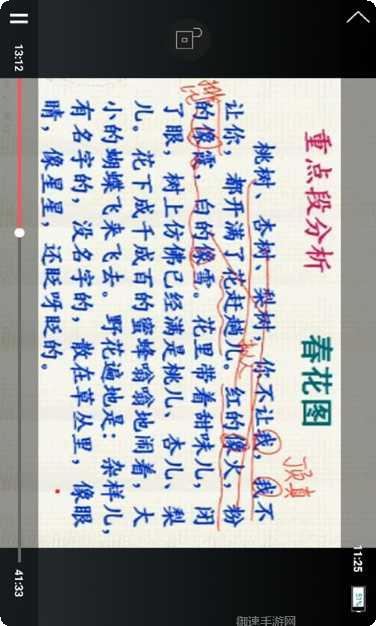 11:25
51%
重点段分析 春花图
顶真
桃树、杏树、梨树,你不让我,我不
拟人
让你,都开满了花赶趟儿。红的像火,粉
排比
的像霞,白的像雪。花里带着甜味儿,闭
了眼,树上仿佛已经满是桃儿、杏儿、梨
儿。花下成千成百的蜜蜂嗡嗡地闹着,大
小的蝴蝶飞来飞去。野花遍地是:杂样儿,
有名字的,没名字的,散在草丛里,像眼
睛,像星星,还眨呀眨的。
13:12
41:33
御速手游网